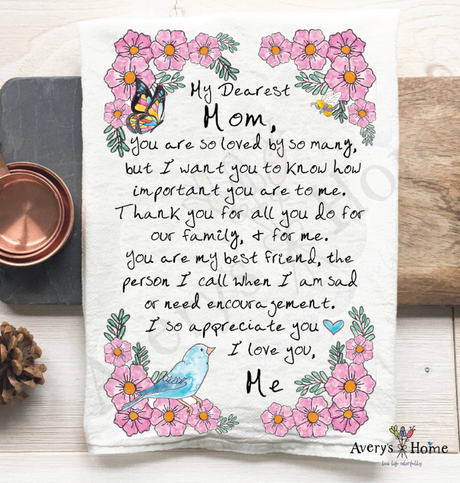 My Dearest
Mom,
You are so loved by so many,
but I want you to know how
important you are to me.
Thank you for all you do for
our family, & for me.
You are my best friend, the
person I call when I am sad
or need encouragement.
I so appreciate you
I love you,
Me
Avery's Home
live life colorfully